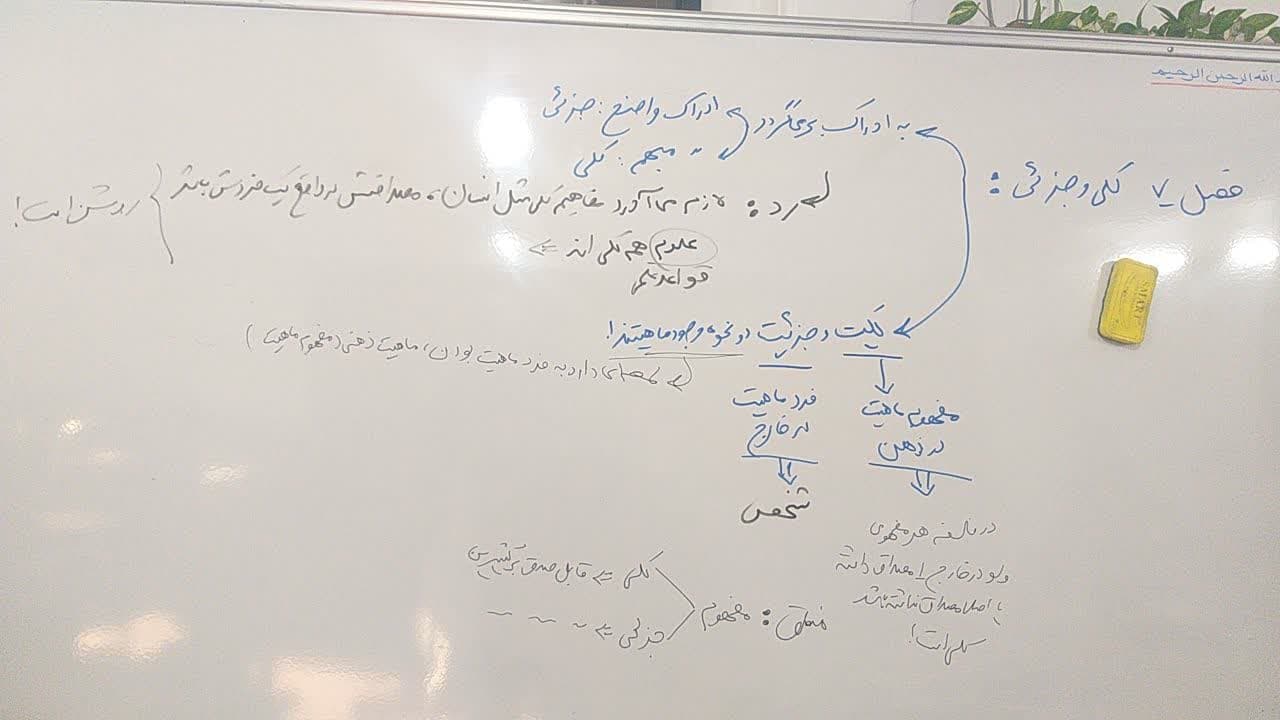 الله الرحمن الرحیم
فصل ۷ کلی و جزئی :
به ادراک برمی‌گردد ادراک واضح : جزئی
〃 مبهم : کلی
رد : لازم می‌آورد مفاهیم کلی مثل انسان، مصداقش در واقع یک فردش باشد
روشن است!
علوم هم کلی اند ⇐
قواعد
کلیت و جزئیت دو نحوه وجود ماهیتند!
دارد به فرد ماهیت بودن، ماهیت ذهنی (مفهوم ماهیت)
مفهوم ماهیت
در ذهن
فرد ماهیت
در خارج
تشخص
در فلسفه هر مفهومی
ولو در خارج ۱ مصداق داشته
یا اصلا مصداق نداشته باشد
کلی است!
منطق : مفهوم
کلی ⇐ قابل صدق بر کثیرین
جزئی ⇐ ~ ~ ~
SAFARI